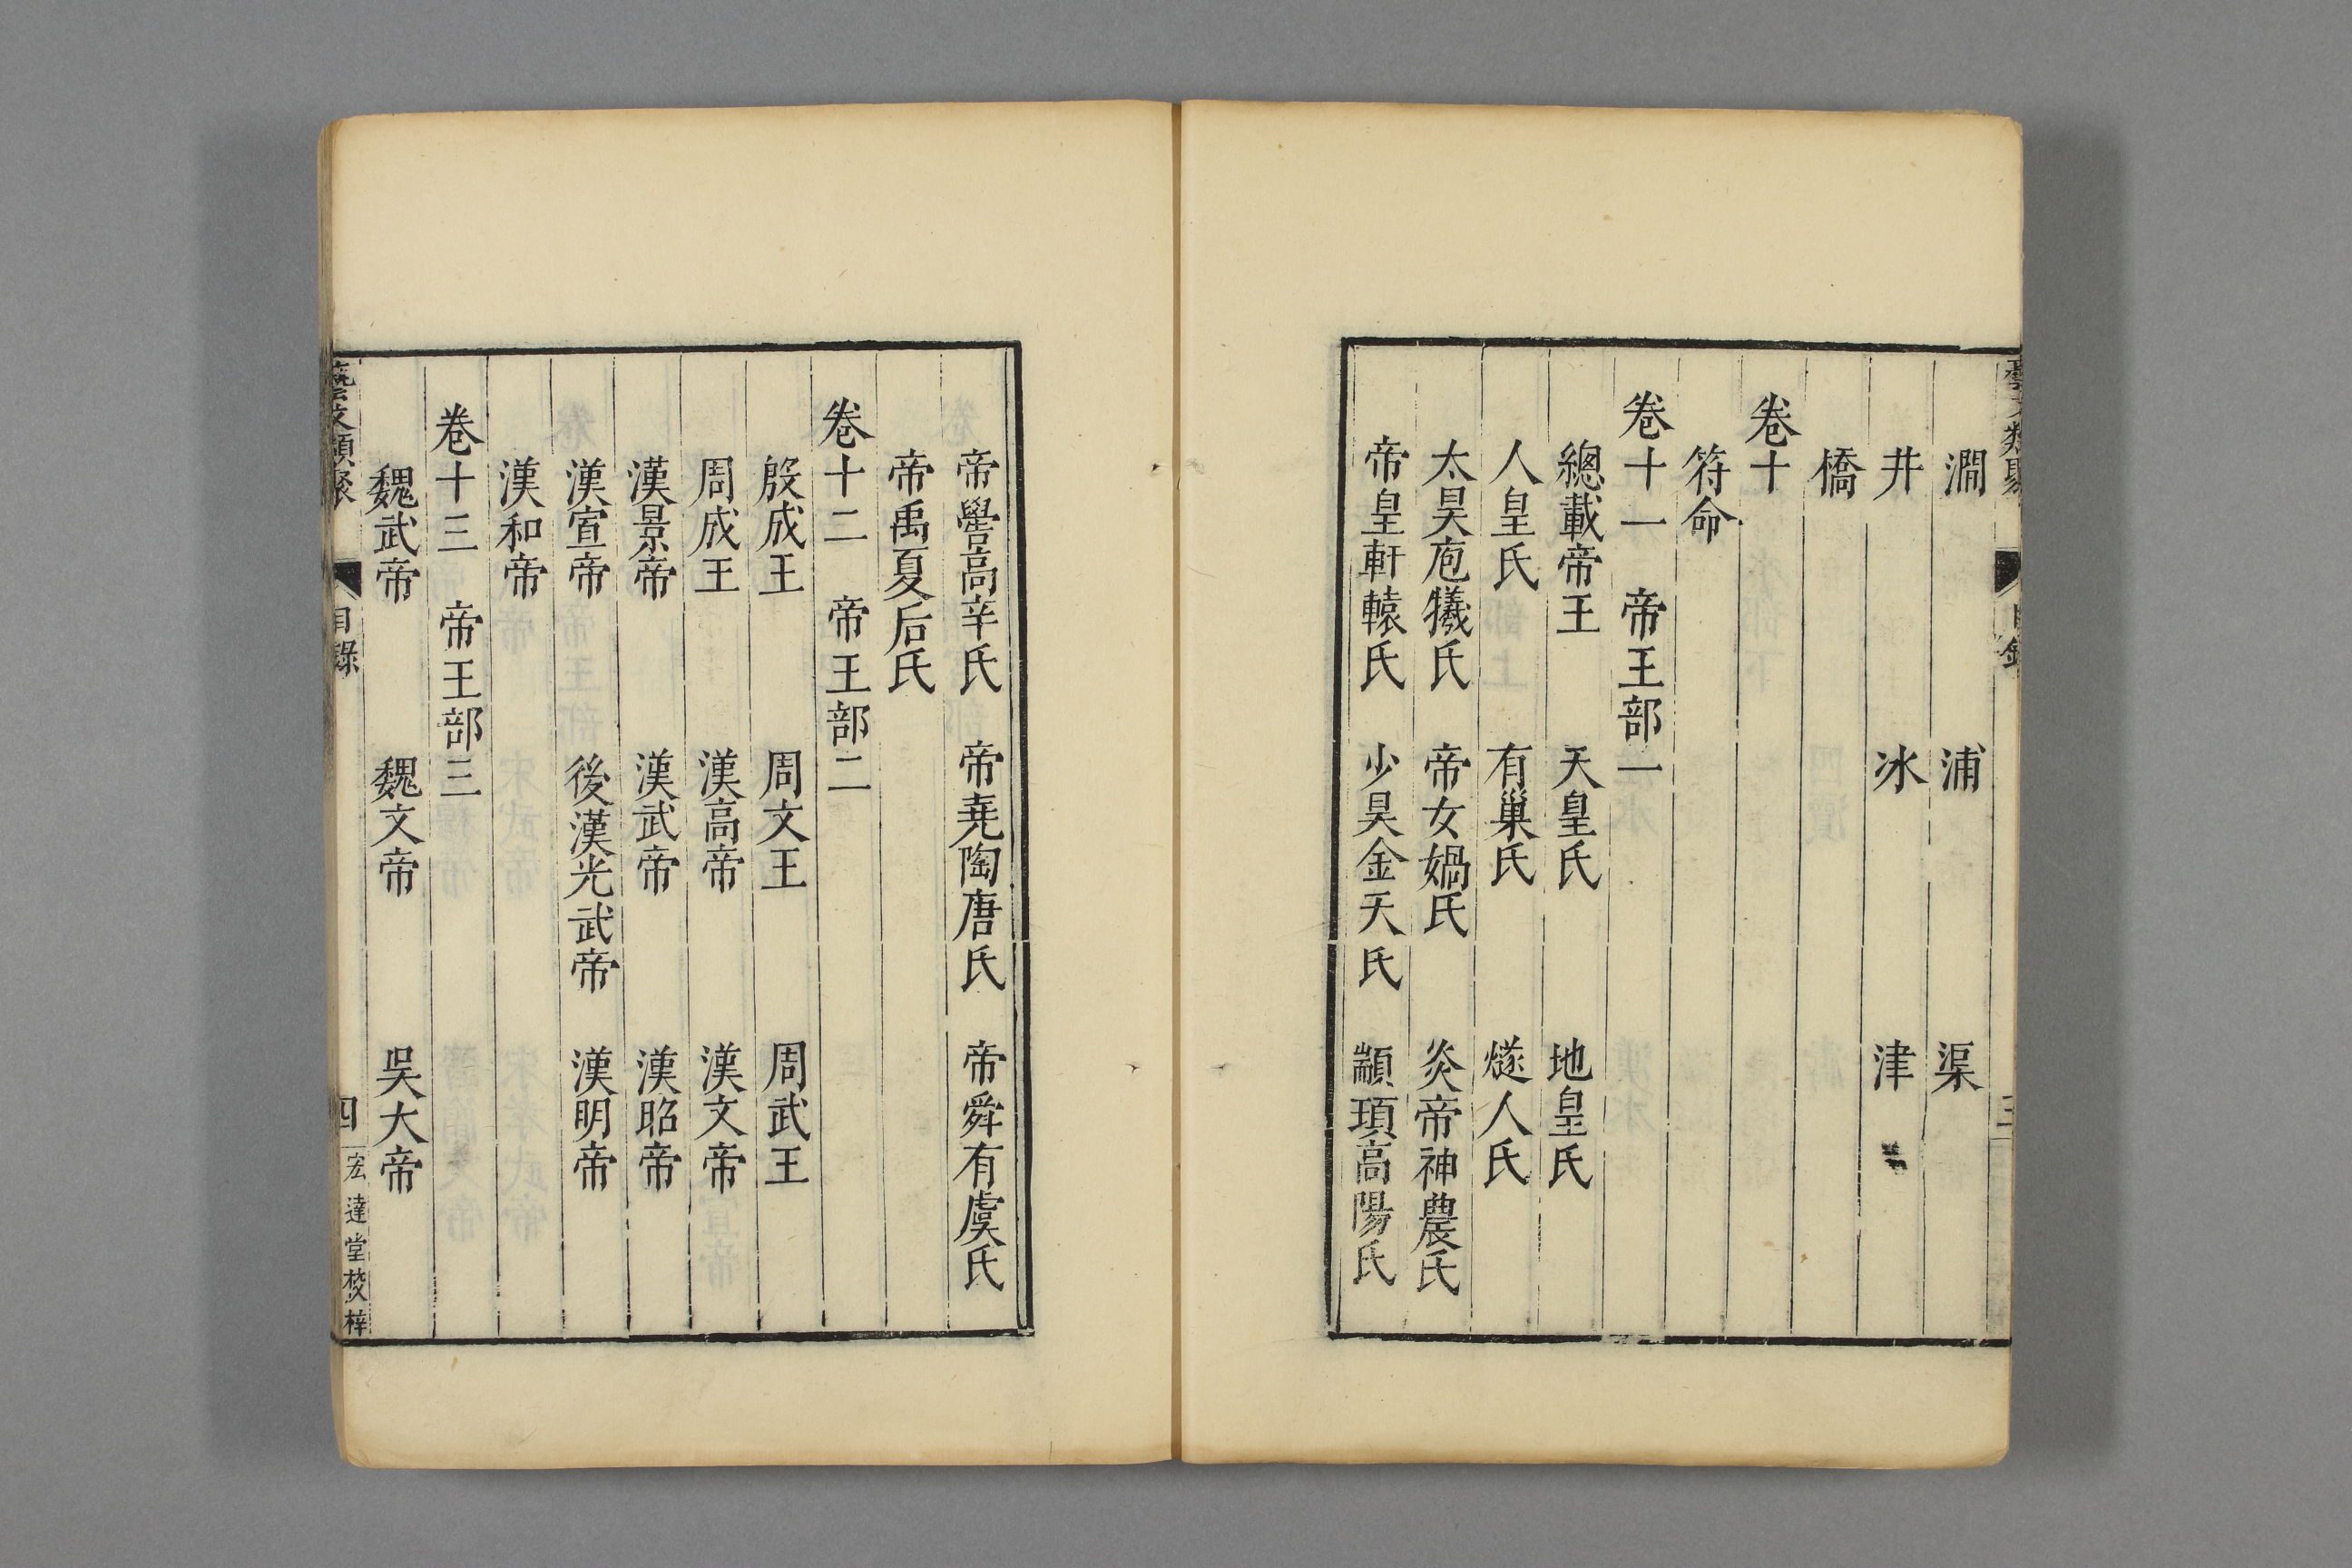 藝文類聚 目錄 三
澗 浦 渠
井 冰 津
橋
卷十
符命
卷十一 帝王部一
總載帝王 天皇氏 地皇氏
人皇氏 有巢氏 燧人氏
太昊庖犧氏 帝女媧氏 炎帝神農氏
帝皇軒轅氏 少昊金天氏 顓頊高陽氏
帝嚳高辛氏 帝堯陶唐氏 帝舜有虞氏
帝禹夏后氏
卷十二 帝王部二
殷成王 周文王 周武王
周成王 漢高帝 漢文帝
漢景帝 漢武帝 漢昭帝
漢宣帝 後漢光武帝 漢明帝
漢和帝
卷十三 帝王部三
魏武帝 魏文帝 吳大帝
藝文類聚 目錄 四 宏達堂校梓